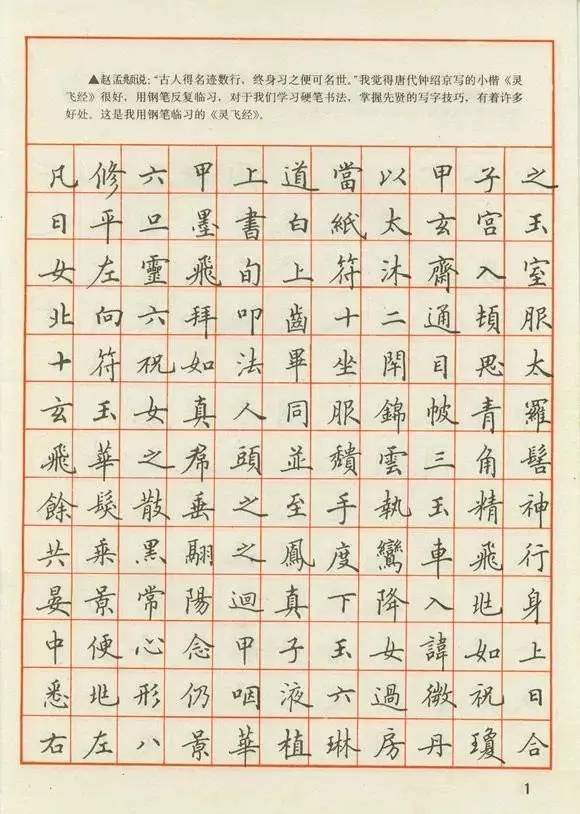 ▲赵孟頫说：“古人得名迹数行，终身习之便可名世。”我觉得唐代钟绍京写的小楷《灵
飞经》很好，用钢笔反复临习，对于我们学习硬笔书法，掌握先贤的写字技巧，有着许多
好处。这是我用钢笔临习的《灵飞经》。
凡修六甲上道當以甲子之
日平旦墨書白紙太玄宮玉
女左靈飛旬上符沐齋入室
北向六拜叩齒十二通頓服
十符祝如法畢坐閉目思太
玄玉女真人同服錦帔青羅
飛華之帬頭並穨雲三角髻
餘髮散垂之至手執玉精神
共乘黑翮之鳳度鸞車飛行
晏景常陽迴真下降入兆身
中便心念甲子玉女諱如上
悉兆形仍咽液六過微祝日
右左八景華植琳房丹瓊合
1